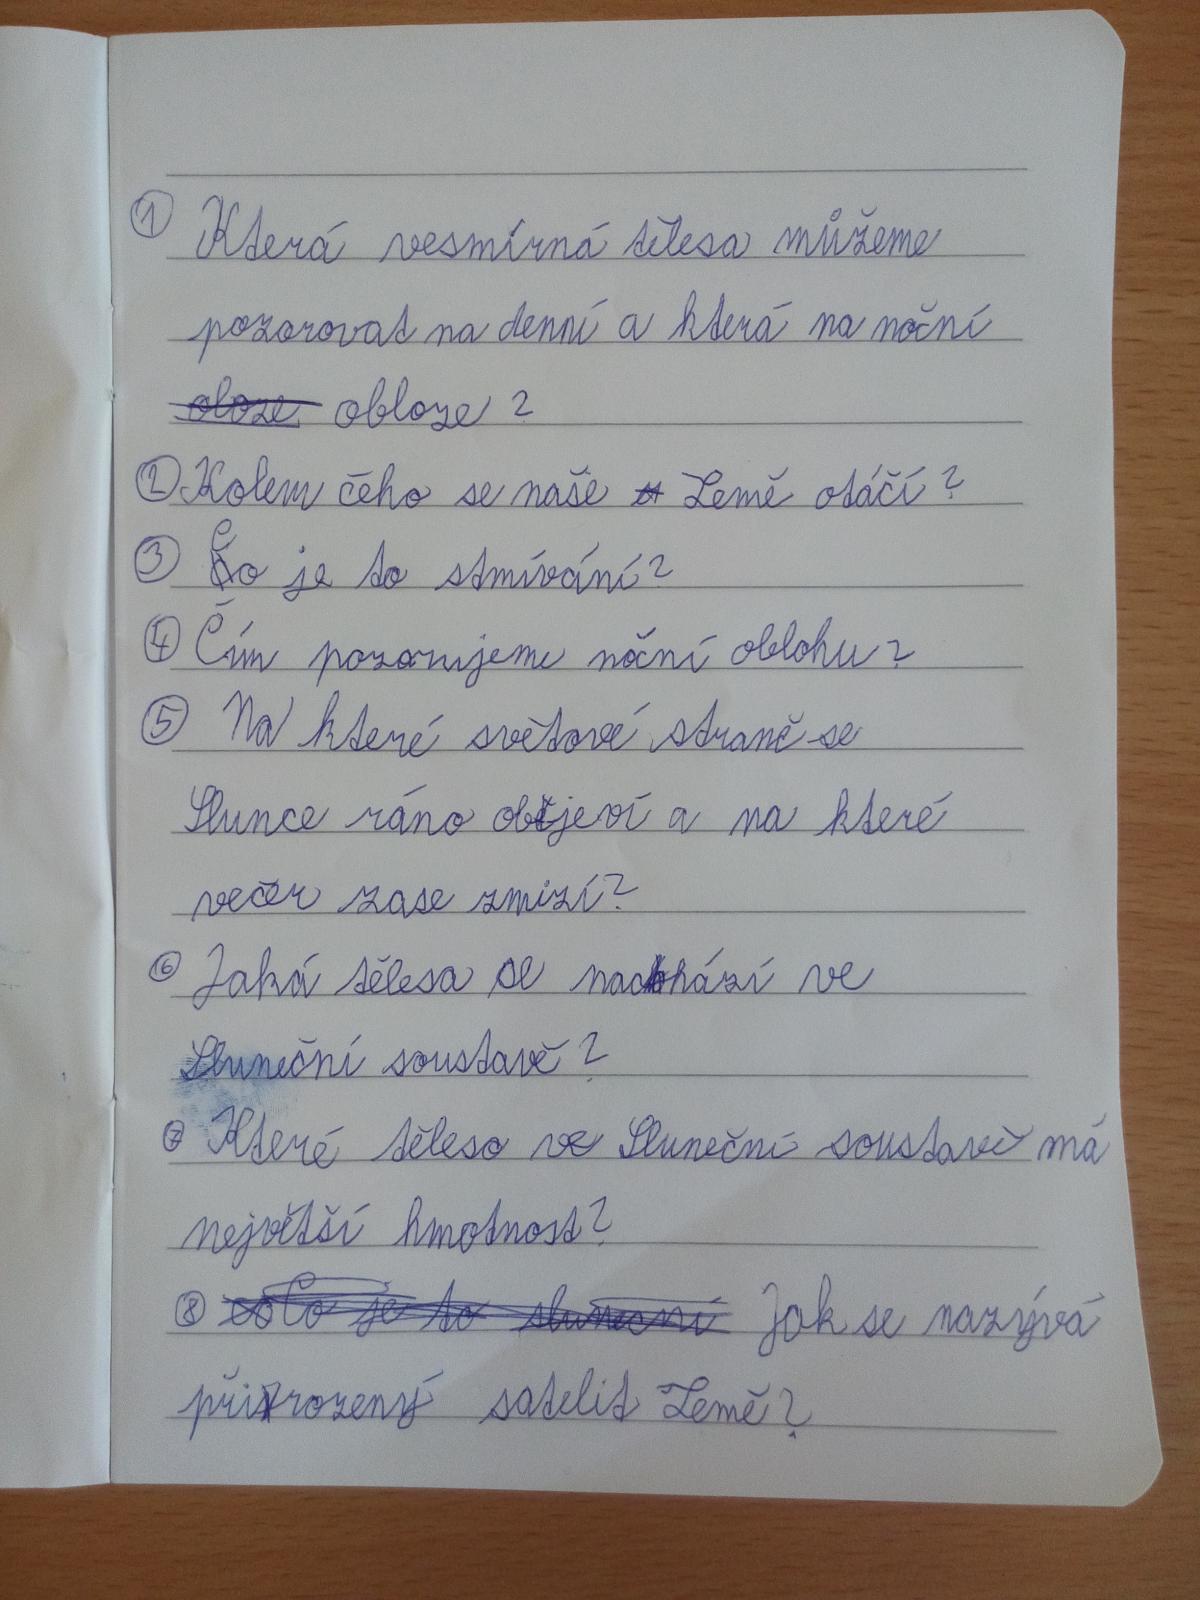 1 Která vesmírná tělesa můžeme
pozorovat na denní a která na noční
oloze obloze?
2 Kolem čeho se naše Země otáčí?
3 Co je to stmívání?
4 Čím pozorujeme noční oblohu?
5 Na které světové straně se
Slunce ráno objeví a na které
večer zase zmizí?
6 Jaká tělesa se nachází ve
Sluneční soustavě?
7 Které těleso ve Sluneční soustavě má
největší hmotnost?
8 Co je to sluneční Jak se nazývá
přirozený satelit Země?